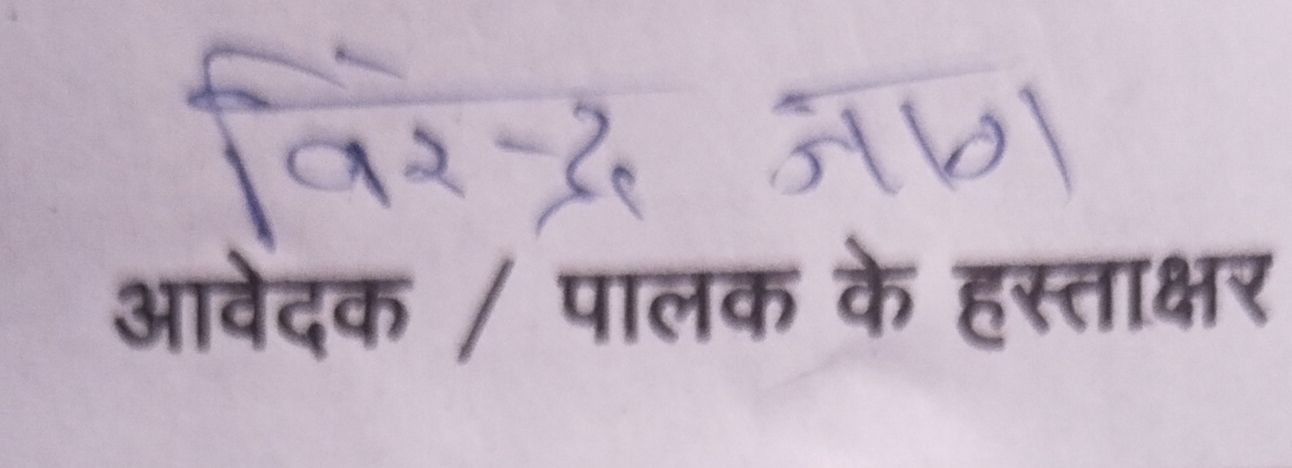 विरेन्द्र
आवेदक / पालक के हस्ताक्षर